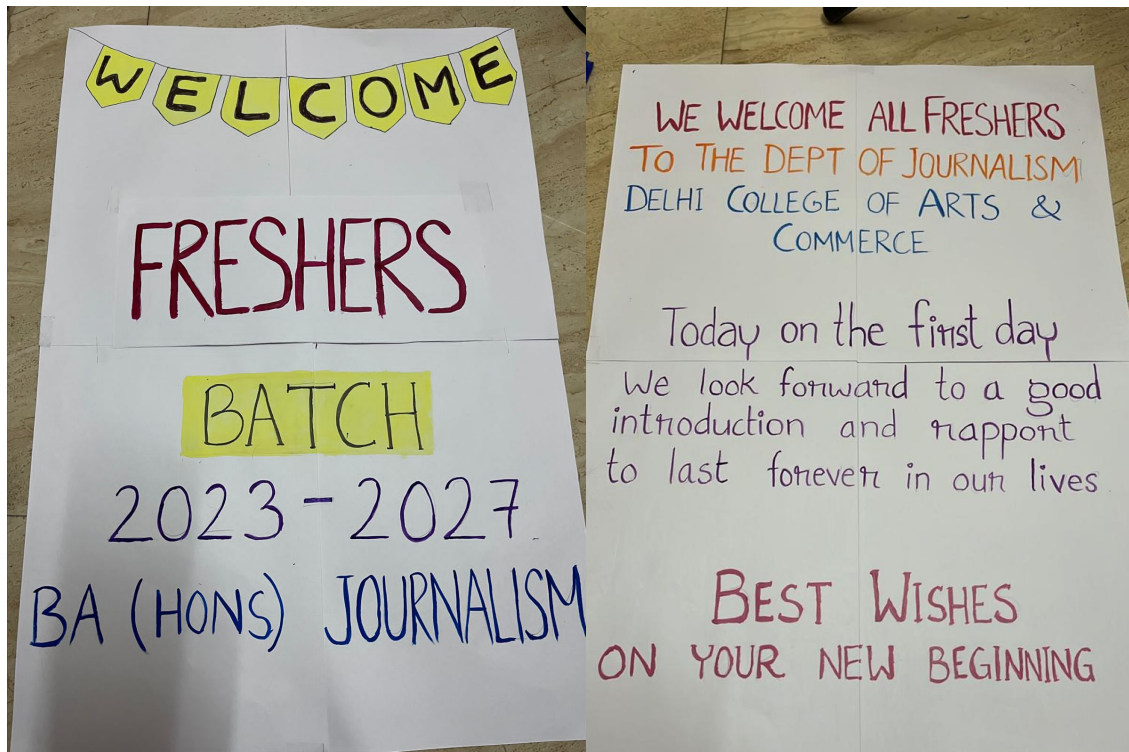 WELCOME
FRESHERS
BATCH
2023-2027
BA (HONS) JOURNALISM
WE WELCOME ALL FRESHERS
TO THE DEPT OF JOURNALISM
DELHI COLLEGE OF ARTS &
COMMERCE
Today on the first day
We look forward to a good
introduction and rapport
to last forever in our lives
BEST WISHES
ON YOUR NEW BEGINNING